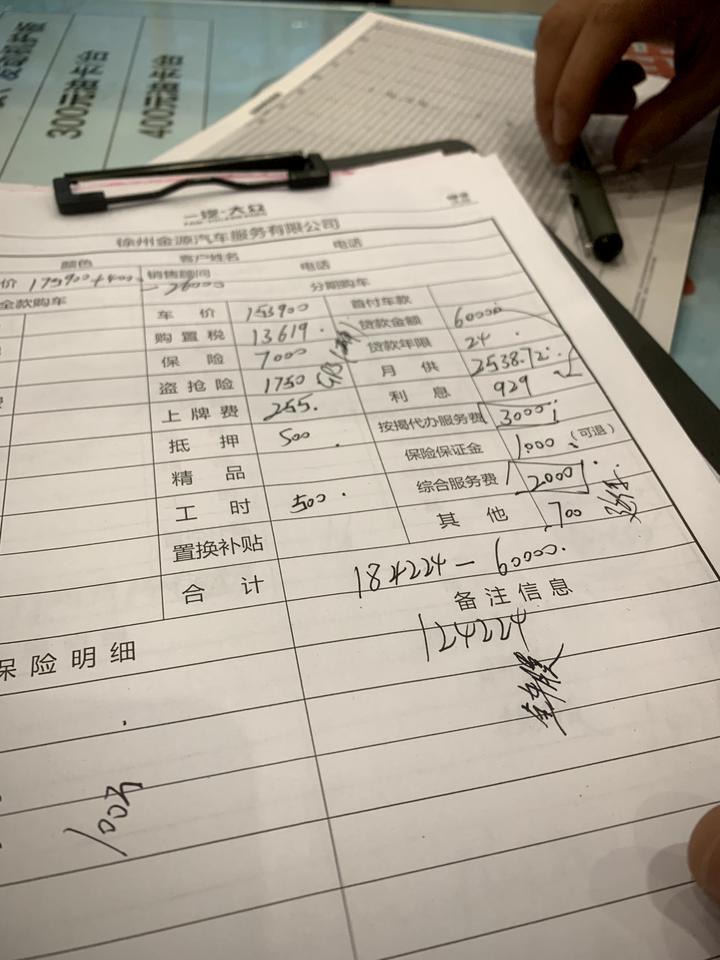 300元油卡1台
400元油卡1台
一汽-大众
徐州金源汽车服务有限公司
颜色 客户姓名 电话
价 175900+400 销售顾问 电话
-26000
全款购车 分期购车
车价 153900 首付车款
购置税 13619 贷款金额 60000
保险 7000 贷款年限 24
盗抢险 1750 月供 2538.72
上牌费 255 利息 929
抵押 500 按揭代办服务费 3000
精品 保险保证金 1000 (可退)
工时 500 综合服务费 2000
置换补贴 其他 700
合计 184224 - 60000
备注信息
124224
保险明细
100万